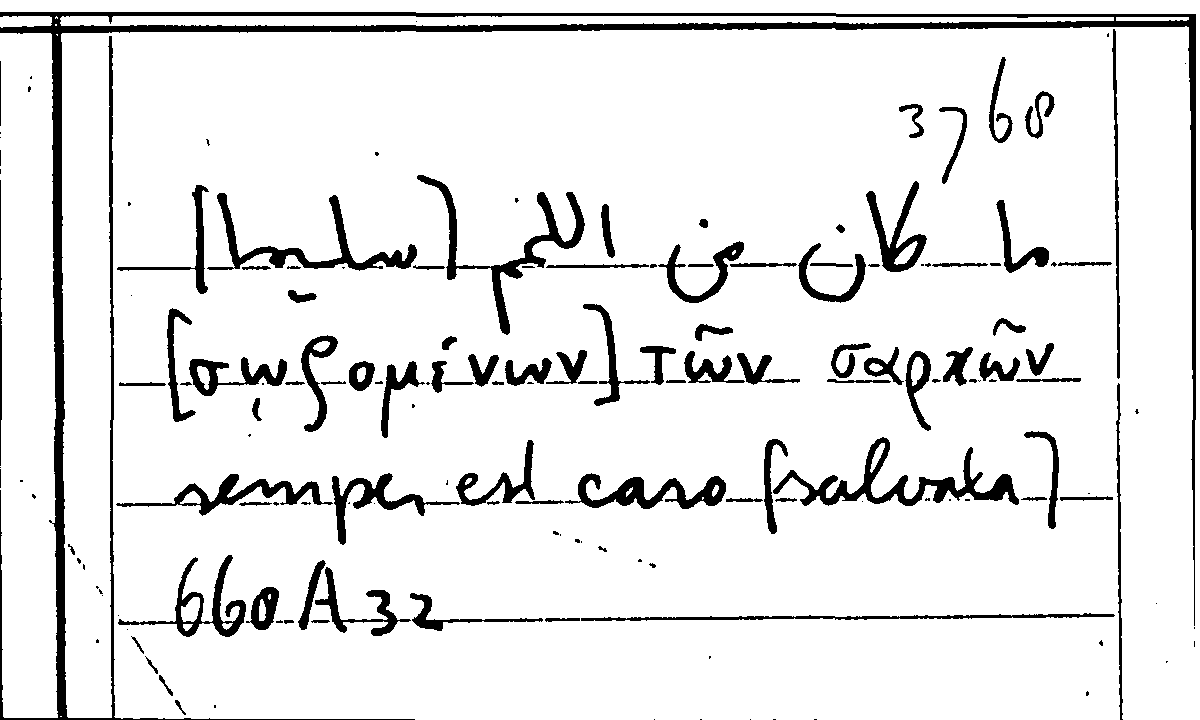 3768
ما كان من اللحم [سليما]
[σῳζομένων] τῶν σαρκῶν
semper est caro [salvata]
660 A 32